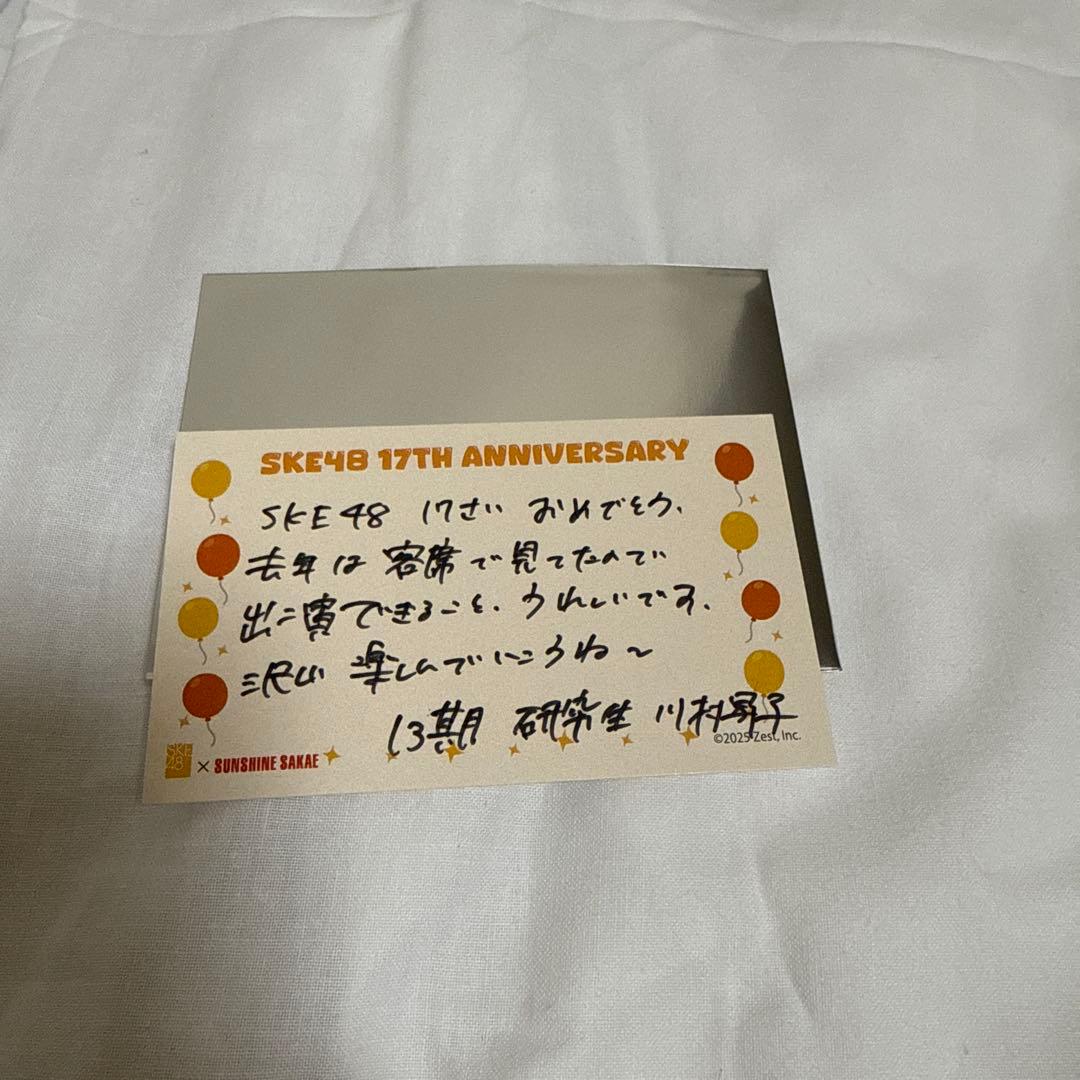 SKE48 17TH ANNIVERSARY
SKE48 17さい おめでとう、
去年は客席で見てたので
出演できること、うれしいです。
沢山 楽しんでいこうね~
13期 研究生 川村
©2025 Zest, Inc.
SKE48 × SUNSHINE SAKAE